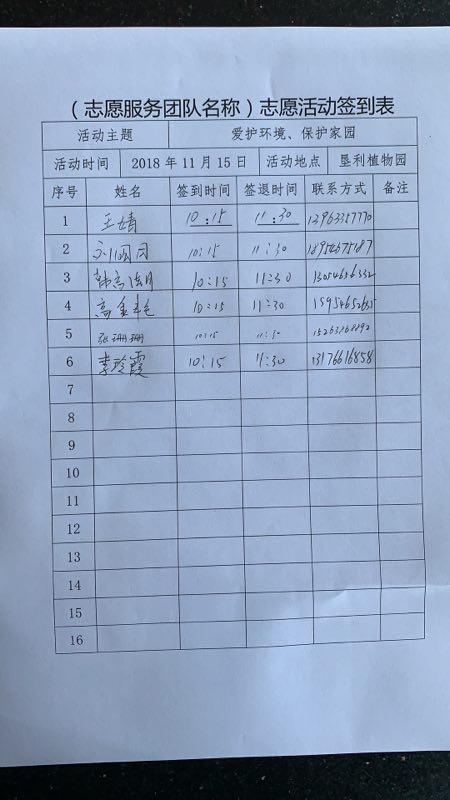 （志愿服务团队名称）志愿活动签到表
活动主题 爱护环境、保护家园
活动时间 2018 年 11 月 15 日 活动地点 垦利植物园
序号 姓名 签到时间 签退时间 联系方式 备注
1 王婧 10:15 11:30 13963357770
2 10:15 11:30
3 10:15 11:30
4 10:15 11:30
5 张珊珊 10:15 11:30
6 李玲霞 10:15 11:30 13176616858
7
8
9
10
11
12
13
14
15
16